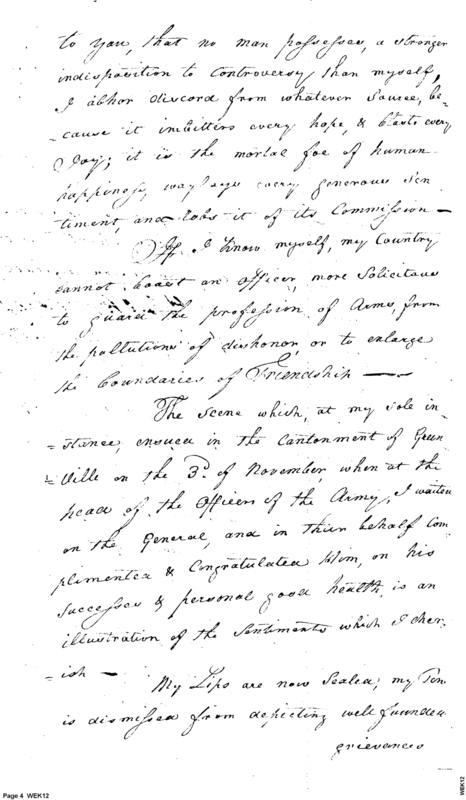 to you, that no man possesses, a stronger
indisposition to Controversy than myself,
I abhor discord from whatever Source, be-
-cause it imbitters every hope, & blasts every
Joy; it is the mortal foe of human
happiness, waylays every generous Sen-
timent, and robs it of its Commission —
If I know myself, my Country
cannot boast an officer, more Solicitous
to guard the profession of Arms, from
the pollutions of dishonor, or to enlarge
the boundaries of Friendship —
The Scene which, at my sole in-
-stance, ensued in the Cantonment of Green
Ville on the 3d. of November, when at the
head of the Officers of the Army, I waited
on the General, and in thier behalf Com
plimented & Congratulated Him, on his
Successes & personal good health, is an
illustration of the Sentiments which I cher-
-ish —
My Lips are now Sealed, my Pen
is dismissed from depicting well founded
grievances
Page 4 WEK12
WEK12